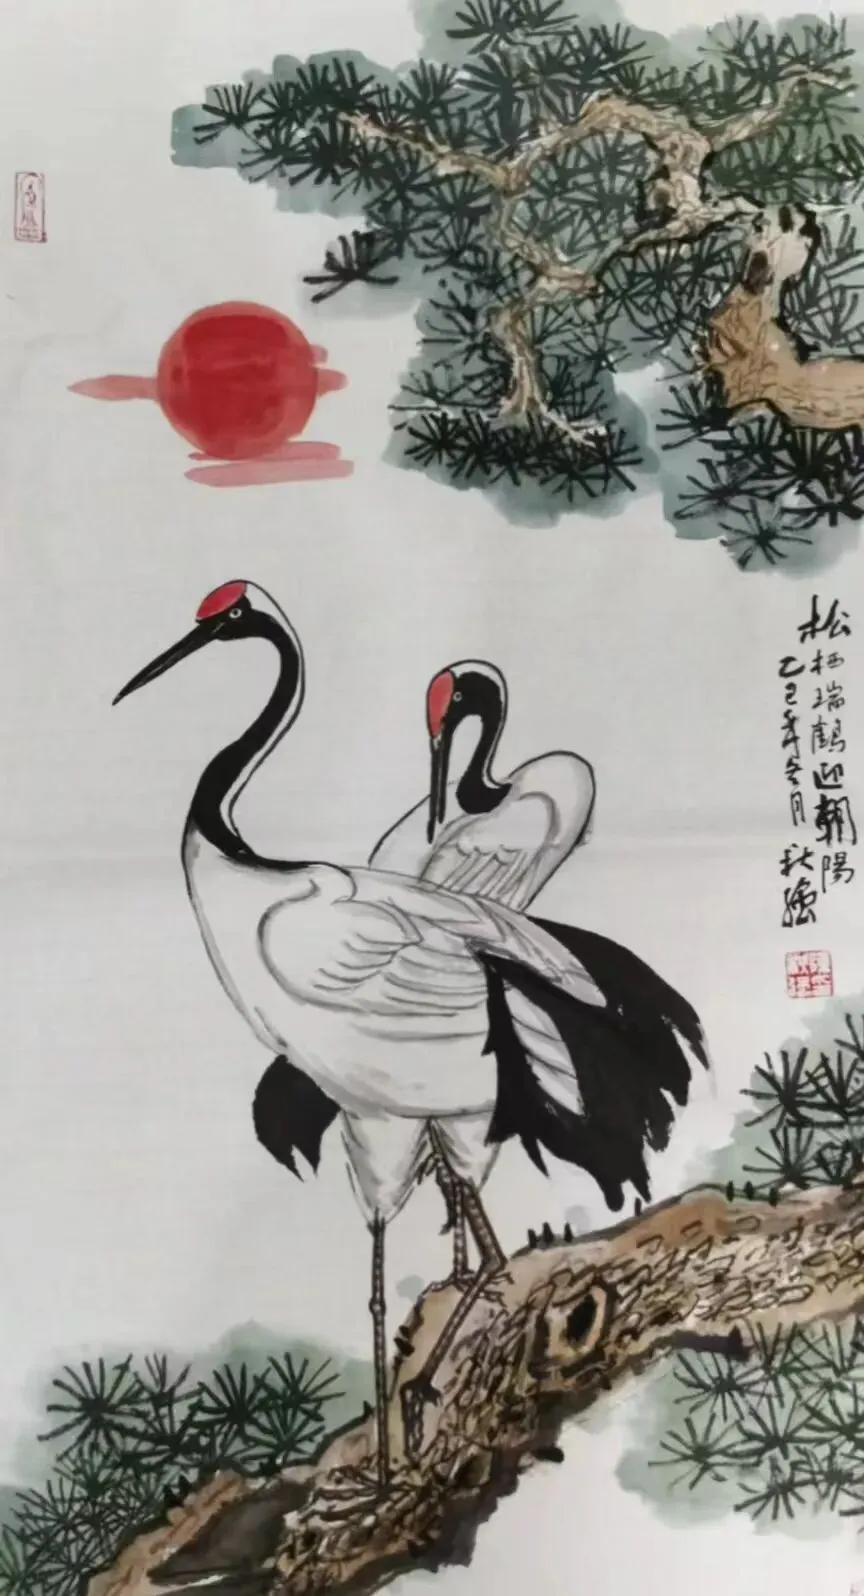 松栖瑞鹤迎朝陽
乙巳年冬月
秋强